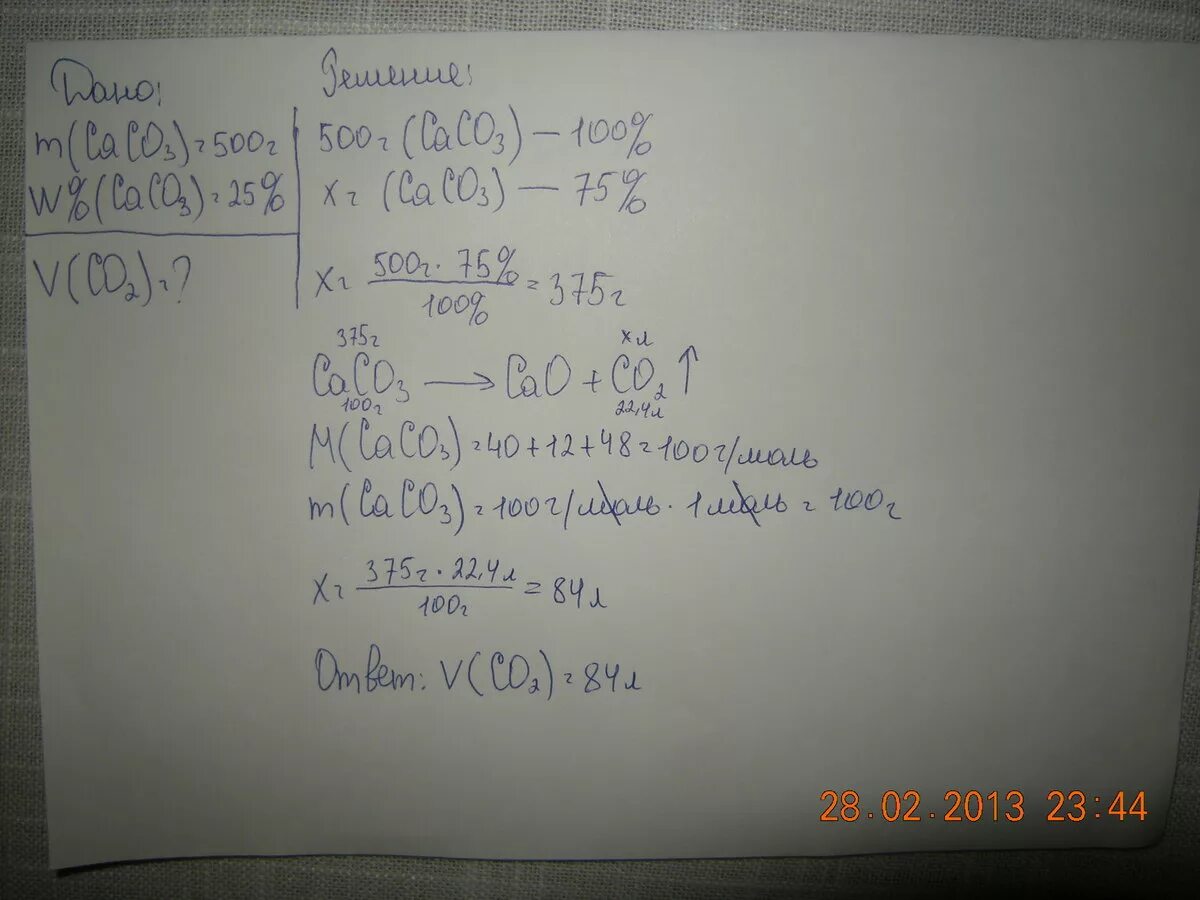 Дано:
m(CaCO3)=500г
W%(CaCO3)=25%
V(CO2)=?
Решение:
500г (CaCO3) — 100%
xг (CaCO3) — 75%
x= 500г · 75% / 100% = 375г
375г xл
CaCO3 → CaO + CO2 ↑
100г 22,4л
M(CaCO3)=40+12+48=100г/моль
m(CaCO3)=100г/моль · 1моль = 100г
x= 375г · 22,4л / 100г = 84л
Ответ: V(CO2)=84л
28.02.2013 23:44